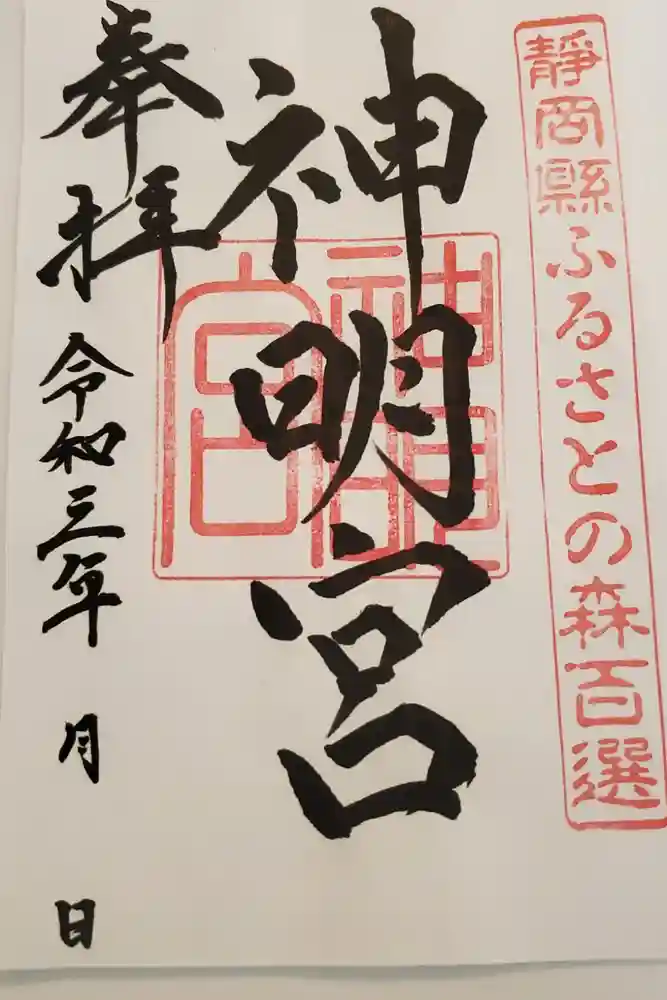 靜岡縣ふるさとの森百選
神明宮
神明宮
奉拝
令和三年 月 日